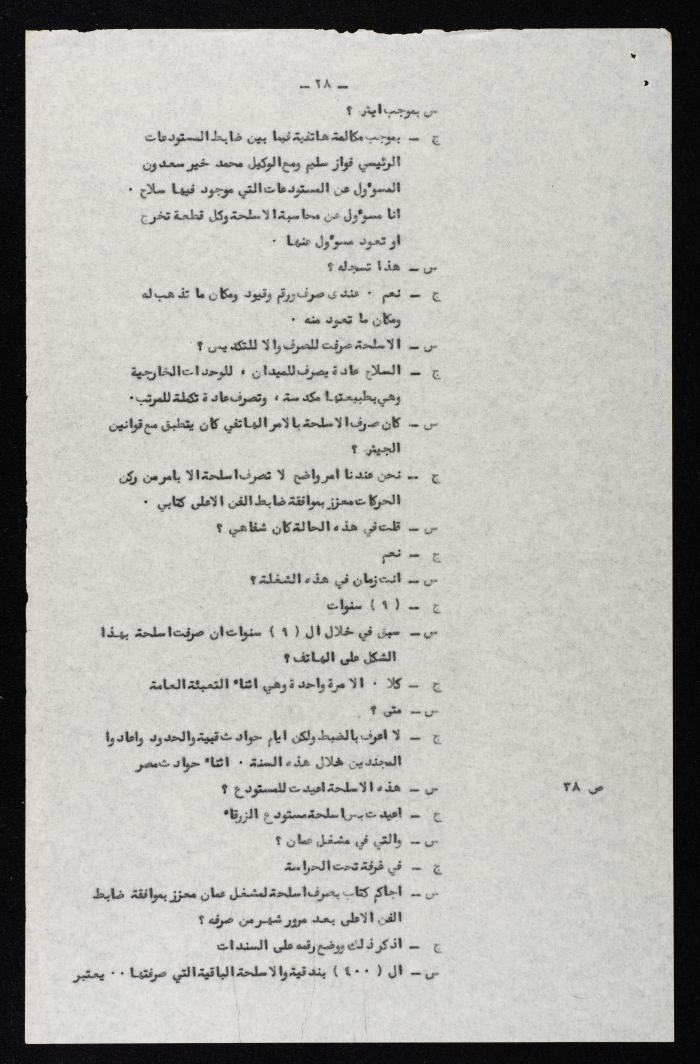 – ٢٨ –
س بموجب ايش ؟
ج – بموجب مكالمة هاتفية فيما بين ضابط المستودعات
الرئيسي فواز سليم ومع الوكيل محمد خير سعدون
المسوٴول عن المستودعات التي موجود فيها سلاح ٠
انا مسوٴول عن محاسبة الاسلحة وكل قطعة تخرج
او تعود مسوٴول عنها ٠
س – هذا تسجله ؟
ج – نعم ٠ عندى صرف ورقم وقيود ومكان ما تذهب له
ومكان ما تعود منه ٠
س – الاسلحة صرفت للصرف والا للتكديس ؟
ج – السلاح عادة يصرف للميدان ، للوحدات الخارجية
وهي بطبيعتها مكدسة ، وتصرف عادة تكملة للمرتب٠
س – كان صرف الاسلحة بالامر الهاتفي كان يتطبق مع قوانين
الجيش ؟
ج – نحن عندنا امر واضح لا تصرف اسلحة الا بامر من ركن
الحركات معزز بموافقة ضابط الفن الاعلى كتابي ٠
س – قلت في هذه الحالة كان شفاهي ؟
ج – نعم
س – انت زمان في هذه الشغلة ؟
ج – ( ٩ ) سنوات
س – سبق في خلال ال ( ٩ ) سنوات ان صرفت اسلحة بهذا
الشكل على الهاتف ؟
ج – كلا ٠ الا مرة واحدة وهي اثناء التعبئة العامة
س – متى ؟
ج – لا اعرف بالضبط ولكن ايام حوادث قبية والحدود واعادوا
المجندين خلال هذه السنة ٠ اثناء حوادث مصر
س – هذه الاسلحة اعيدت للمستودع ؟
ص ٣٨
ج – اعيدت بس اسلحة مستودع الزرقاء
س – والتي في مشغل عمان ؟
ج – في غرفة تحت الحراسة
س – اجاكم كتاب بصرف اسلحة لمشغل عمان معزز بموافقة ضابط
الفن الاعلى بعد مرور شهر من صرفه ؟
ج – اذكر ذلك ووضع رقمه على السندات
س – ال ( ٤٠٠ ) بندقية والاسلحة الباقية التي صرفتها ٠٠ يعتبر